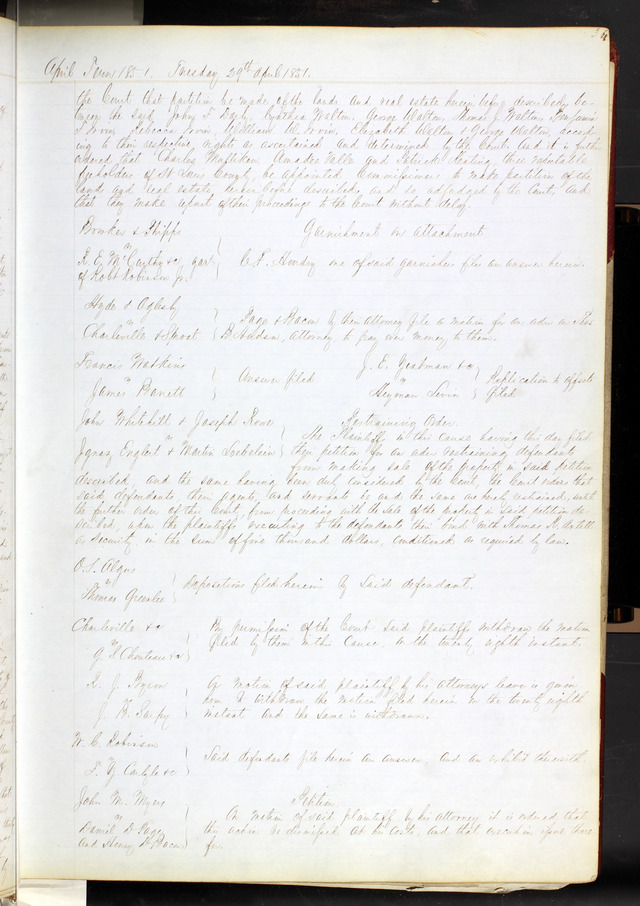 April Term 1851. Tuesday 29th April 1851.
the Court that partition be made of the lands and real estate herein before described, be-
tween the said John S. Cynthia Walton, George Walton, Thomas J. Walton, Benjamin
Rebecca William W. Elizabeth Walton & George Walton, accord-
ing to their respective rights as ascertained and determined by the Court. And it is further
ordered that Charles Amadee Valle and Patrick three reputable
freeholders of St Louis County, be appointed Commissioners to make partition of the
land and real estate, herein before described, and so adjudged by the Court, and
that they make report of their proceedings to the Court without delay.
Bowker & Phipps
Garnishment on Attachment
vs
R. E. McCarthy &c gar
of Robt Robinson Jr.
C. F. Hendry one of said garnishees files an answer herein.
Hyde & Oglesby
vs
Charleville & Sproat
Page & Bacon by their attorney file a motion for an order on Thos
B. Hudson, Attorney to pay over money to them.
Francis Watkins
vs
James Barrett
Answer filed
J. E. Yeatman &c
vs
Heyman Levin
Replication to offsets
filed
John Whitehill & Joseph Rowe
Restraining Order.
vs
Ignaz Englert & Martin
The Plaintiffs in this cause having this day filed
their petition for an order restraining defendants
from making sale of the property in said petition
described, and the same having been duly considered by the Court, the Court orders that
said defendants, their agents, and servants be and the same are hereby restrained, until
the further order of this Court, from proceeding with the sale of the property in said petition de-
scribed, upon the plaintiffs executing to the defendants their bond with Thomas
as security, in the sum of five thousand dollars, conditioned as required by law.
O. S. Algus
vs
Thomas Greenlee
Depositions filed herein by said defendant.
Charleville &c
vs
G. S. Chouteau &c
By permission of the Court said plaintiffs withdraw the motion
filed by them in this cause, on the twenty eighth instant.
R. J.
vs
J. H.
On motion of said plaintiff by his attorneys leave is given
him to withdraw the motion filed herein on the twenty eighth
instant and the same is withdrawn.
W. C. Robinson
vs
T. Y. Carlyle &c
Said defendants file herein an answer, and an exhibit therewith.
John M. Myers
Petition
vs
Daniel D. Page
and Henry D. Bacon
On motion of said plaintiff by his attorney it is ordered that
this action be dismissed at his costs, and that execution issue there
for.